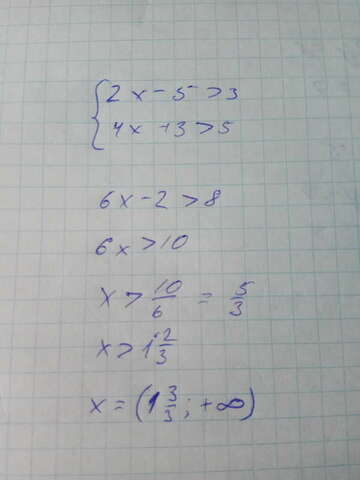 { 2x - 5 > 3
4x + 3 > 5
6x - 2 > 8
6x > 10
x > 10/6 = 5/3
x > 1 2/3
x = (1 3/3; +∞)